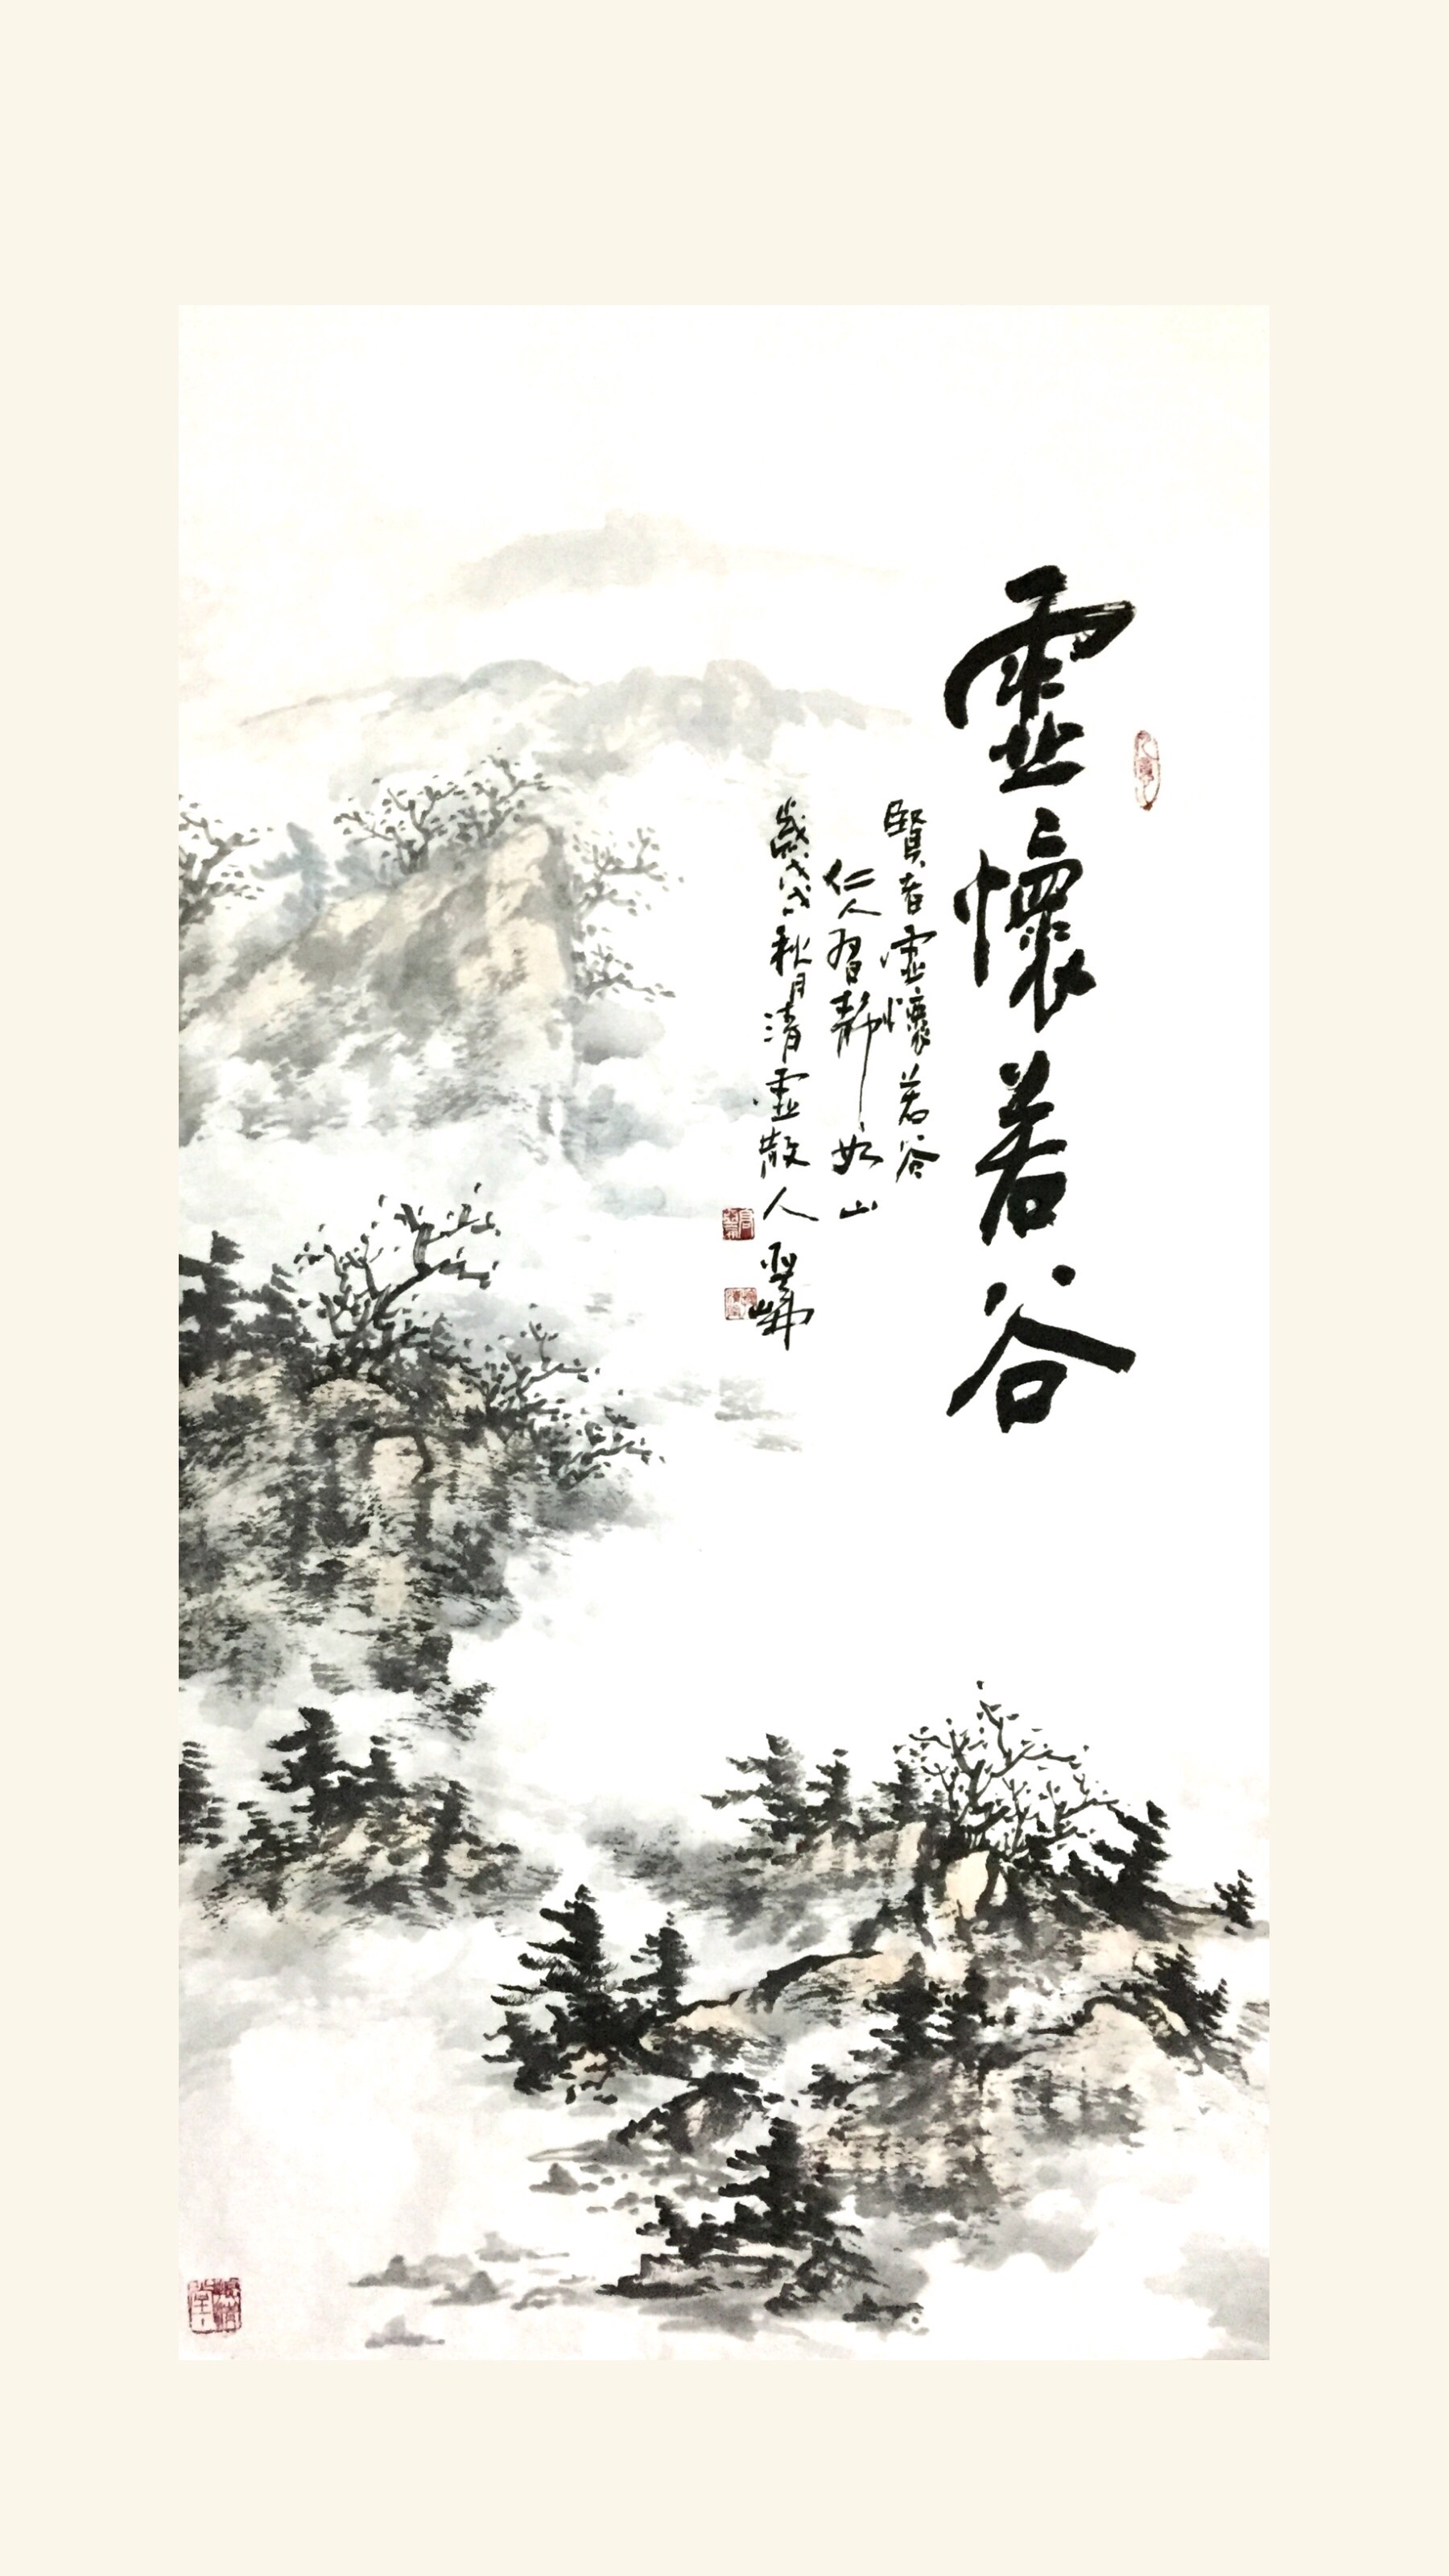 虛懷若谷
賢者虛懷若谷
仁人習靜如山
歲戊戌秋月清虛散人